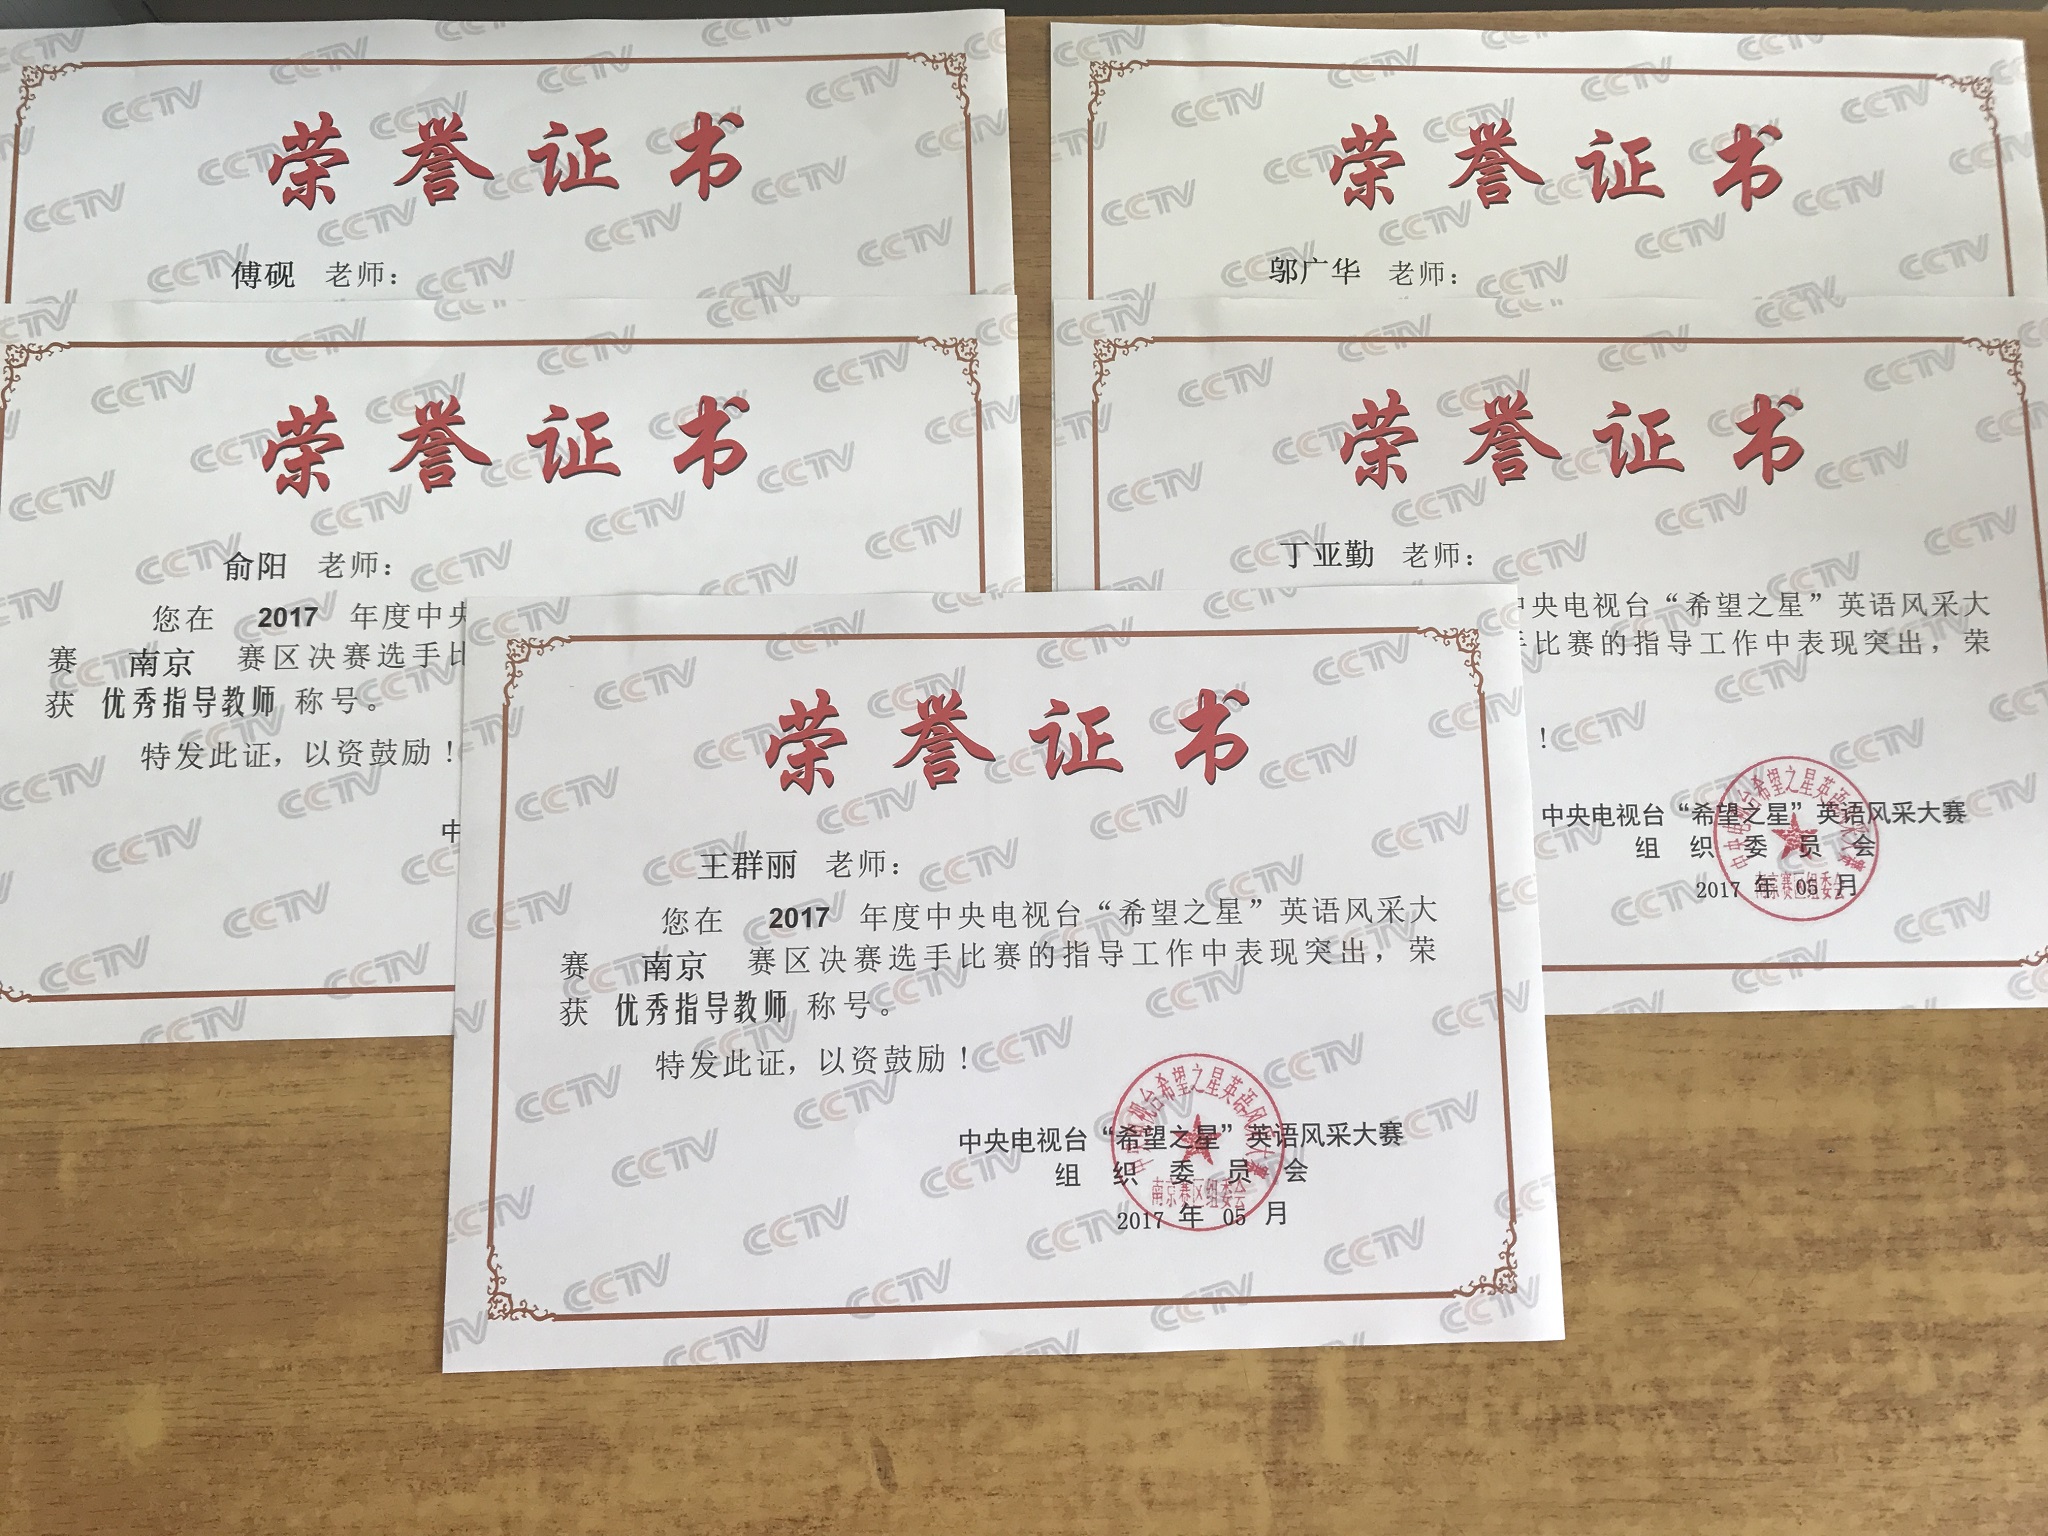 荣誉证书
傅砚 老师：
荣誉证书
邬广华 老师：
荣誉证书
俞阳 老师：
您在 2017 年度中央
赛 南京 赛区决赛选手比
获 优秀指导教师 称号。
特发此证，以资鼓励！
中
荣誉证书
丁亚勤 老师：
中央电视台“希望之星”英语风采大
手比赛的指导工作中表现突出，荣
！
中央电视台“希望之星”英语风采大赛
组织委员会
2017 年 05 月
中央电视台希望之星英语风采大赛
南京赛区组委会
荣誉证书
王群丽 老师：
您在 2017 年度中央电视台“希望之星”英语风采大
赛 南京 赛区决赛选手比赛的指导工作中表现突出，荣
获 优秀指导教师 称号。
特发此证，以资鼓励！
中央电视台“希望之星”英语风采大赛
组织委员会
2017 年 05 月
中央电视台希望之星英语风采大赛
南京赛区组委会
CCTV